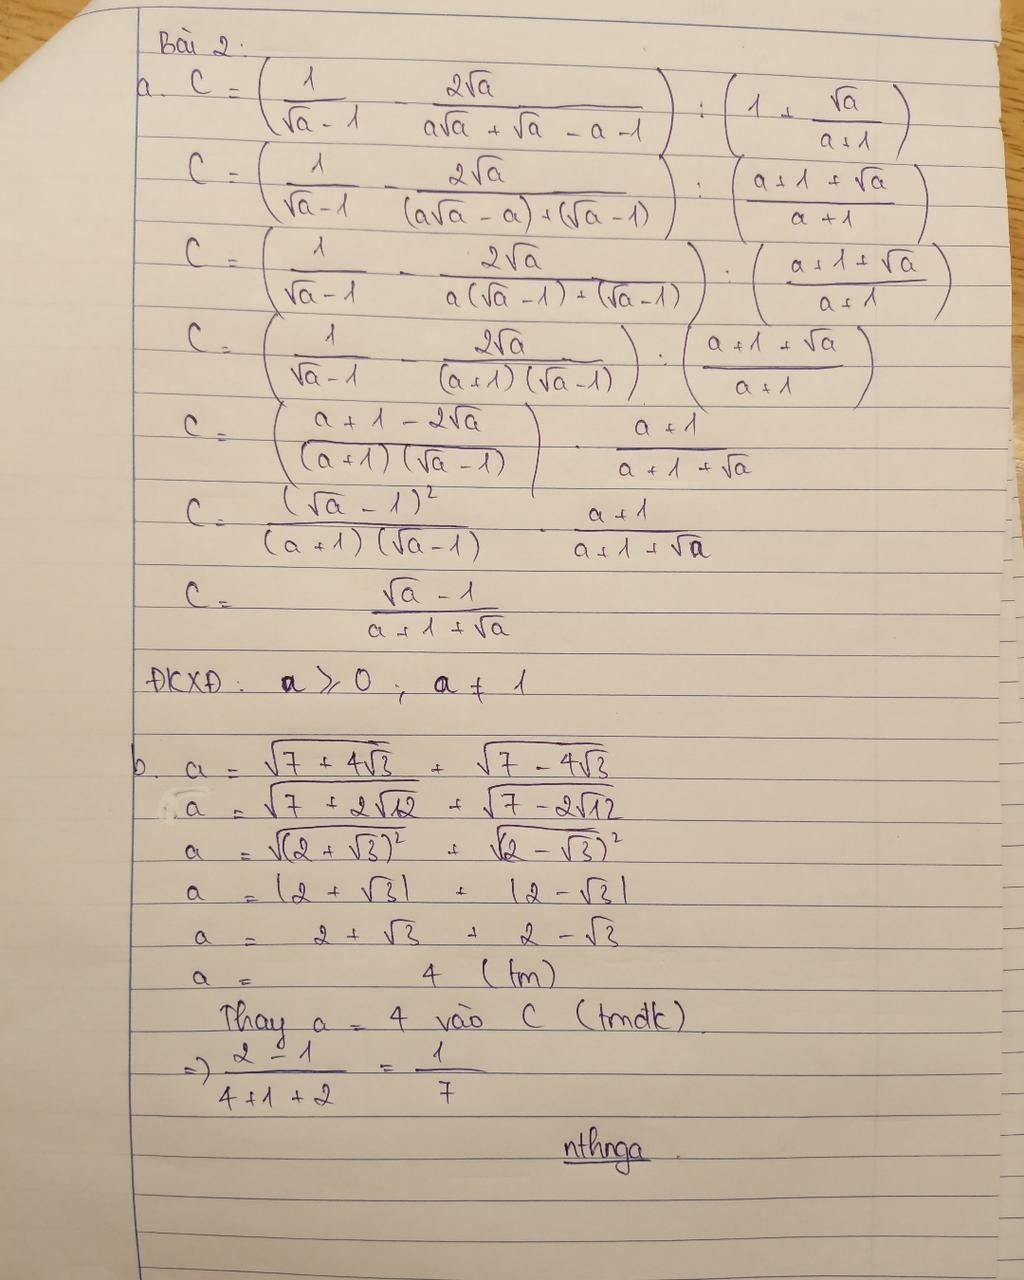 Bài 2:
a. C = (1/(√a - 1) - 2√a/(a√a + √a - a - 1)) : (1 + √a/(a+1))
C = (1/(√a - 1) - 2√a/((a√a - a) + (√a - 1))) : ((a+1+√a)/(a+1))
C = (1/(√a - 1) - 2√a/(a(√a - 1) + (√a - 1))) : ((a+1+√a)/(a+1))
C = (1/(√a - 1) - 2√a/((a+1)(√a - 1))) : ((a+1+√a)/(a+1))
C = ((a+1-2√a)/((a+1)(√a - 1))) · (a+1)/(a+1+√a)
C = (√a - 1)²/((a+1)(√a - 1)) · (a+1)/(a+1+√a)
C = (√a - 1)/(a+1+√a)
ĐKXĐ: a ≥ 0; a ≠ 1
b. a = √(7 + 4√3) + √(7 - 4√3)
a = √(7 + 2√12) + √(7 - 2√12)
a = √((2 + √3)²) + √(2 - √3)²
a = |2 + √3| + |2 - √3|
a = 2 + √3 + 2 - √3
a = 4 (tm)
Thay a = 4 vào C (tmđk)
=> (2 - 1)/(4 + 1 + 2) = 1/7
nthnga